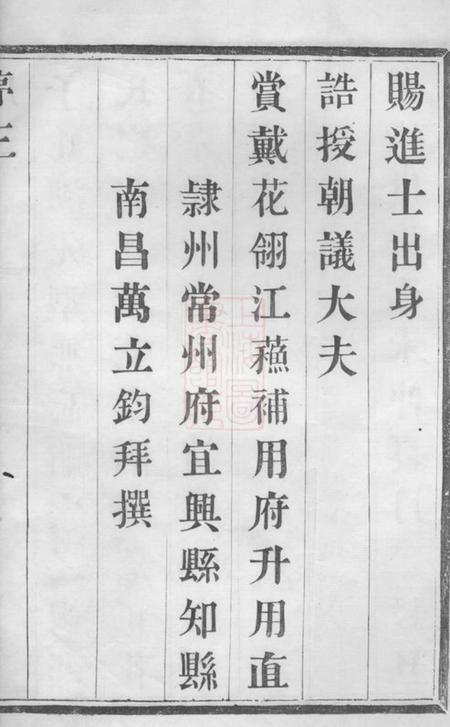 賜進士出身
誥授朝議大夫
賞戴花翎江蘓補用府升用直
隷州常州府宜興縣知縣
南昌萬立鈞拜撰
序三